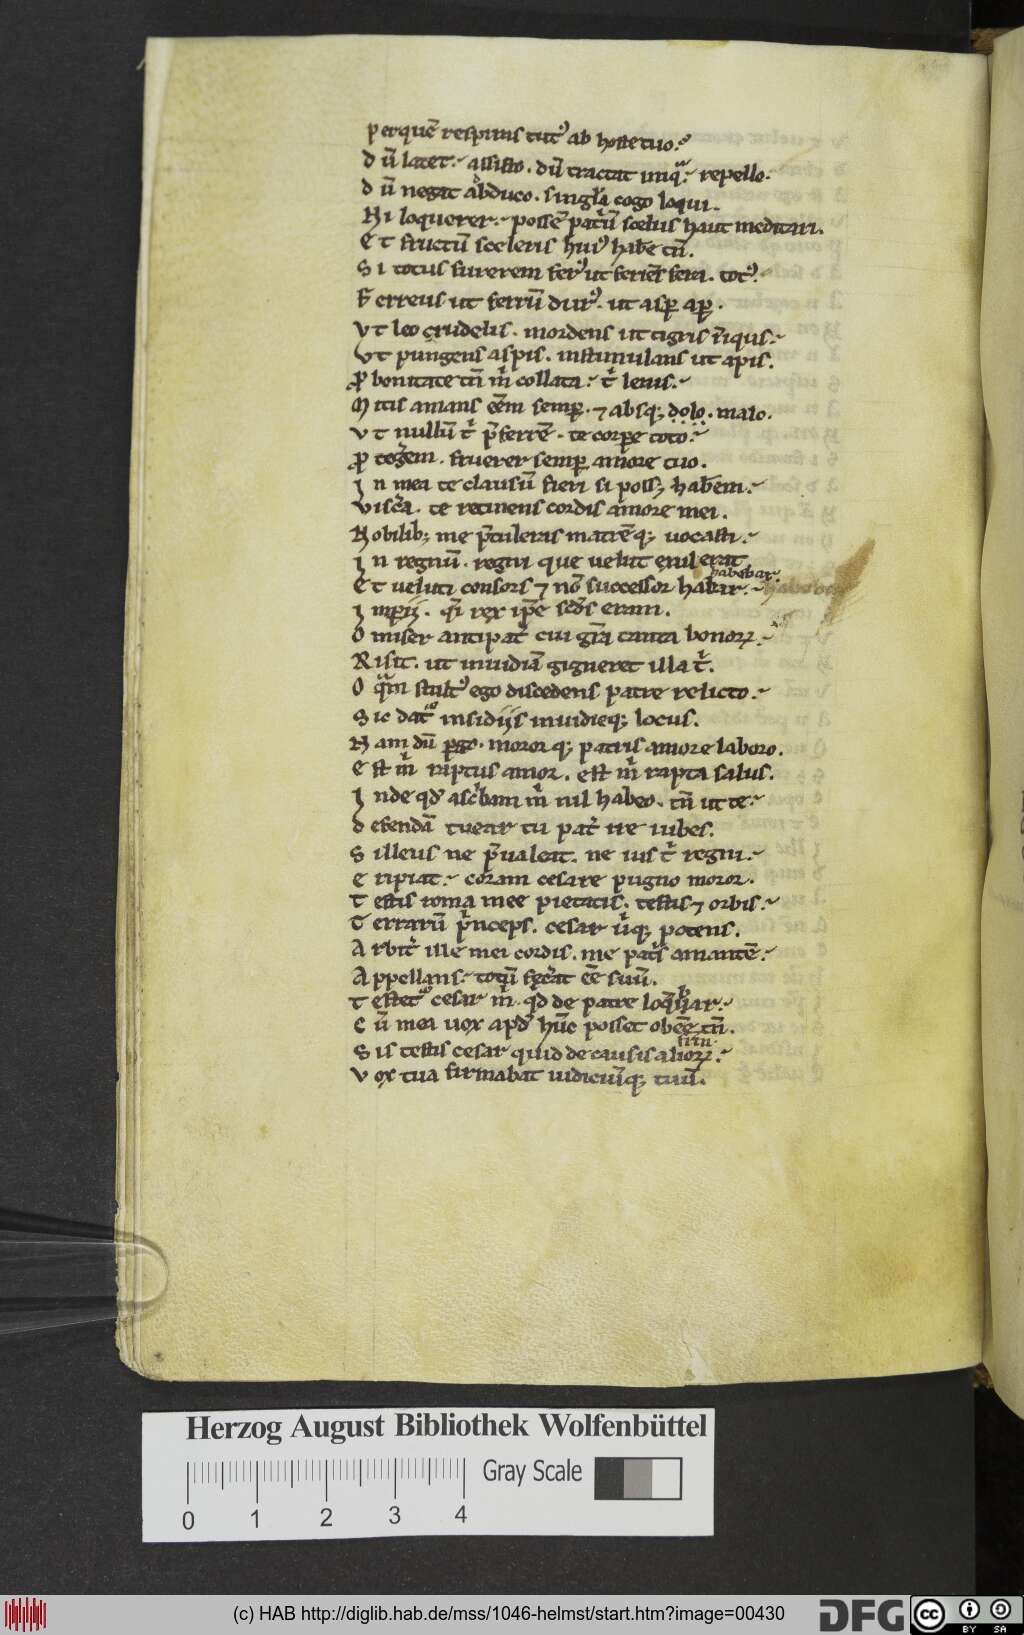 perquē respiniſ tut᷒ ab hoſte tuo.
dū latet. aſſiſto. dū tractat iniq̄. repello.
dū negat abduco. ſinglā cogo loqui.
Ni loquerer. poſſē patͥū ſcelus haut meditari.
Et fructū ſceleris huiꝰ habe tn̄.
Si totus furerem ferꝰ ut feriēſ fera. totꝰ.
Ferreus ut ferrū durꝰ. ut aſꝑ aꝑ.
Vt leo crudelis. mordens ut tigris
Vt pungens aſpis. inſtimulans ut apis.
ꝓ bonitate tn̄ m̄ collata. tͥ lenis.
Mitis amans eēm ſemꝑ. ⁊ abſqꝫ dolo. malo.
Vt nullū tͥ p̄ferrē. te corꝑe toto.
ꝓtegerem. fruerer ſemꝑ amore tuo.
In mea te clauſū fieri ſi poſſꝫ habem.
Viſcͣa. te retinens cordis amore mei.
Nobilibꝫ me p̄tuleras matrēqꝫ uocaſti.
In regnū. regni que uelut exul erat
habebar.
Et ueluti conſors ⁊ nō ſucceſſor habꝛar.
Imꝑij. qͥ rex ip̄e ſcd̄s eram.
O miſer antipat̄ cui gr̄a tanta bonoꝝ.
Riſit. ut inuidiā gigneret illa tͥ.
O qͣm ſtultꝰ ego diſcedens patre relicto.
Sic datͦ inſidijs inuidieqꝫ locus.
Nam dū ꝑgo. moror qꝫ patris amore laboro.
Eſt m̄ raptus amor. eſt m̄ rapta ſalus.
Inde qd̓ aſcͥbam m̄ nil habeo. tn̄ ut te.
defendā tuear tu pat̄ ire iubes.
Silleus ne p̄ualeat. ne ius tͥ regni.
Eripiat. coram ceſare pugno moror.
Teſtis roma mee pietatis. teſtis ⁊ orbis.
Terrarū pͥnceps. ceſar uͥqꝫ potens.
Arbit̄ ille mei cordis. me patͥs amantē.
Appellans. totū fecͣat eē ſuū.
Teſtetͦ ceſar m̄ qd̓ de patre
Cū mea uox apd̓ hūc poſſet obeē tn̄.
Sis teſtis ceſar quid de cauſis alioꝝ.
Vox tua firmabat iudiciūqꝫ tuū.
Herzog August Bibliothek Wolfenbüttel
Gray Scale
0 1 2 3 4
(c) HAB http://diglib.hab.de/mss/1046-helmst/start.htm?image=00430
DFG
cc BY SA